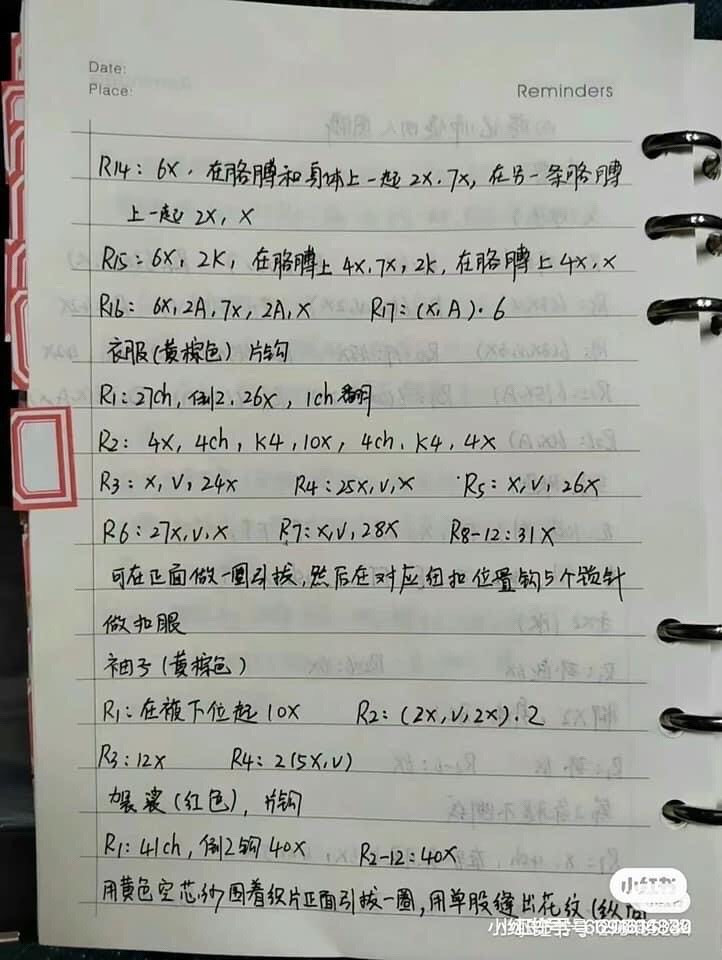 Date:
Place:
Reminders
R14: 6X, 在胳膊和身体上一起 2X, 7X, 在另一条胳膊
上一起 2X, X
R15: 6X, 2K, 在胳膊上 4X, 7X, 2K, 在胳膊上 4X, X
R16: 6X, 2A, 7X, 2A, X R17: (X, A)·6
衣服(黄棕色) 片钩
R1: 27ch, 倒2, 26X, 1ch翻
R2: 4X, 4ch, K4, 10X, 4ch, K4, 4X
R3: X, V, 24X R4: 25X, V, X R5: X, V, 26X
R6: 27X, V, X R7: X, V, 28X R8-12: 31X
可在正面做一圈引拔, 然后在对应纽扣位置钩5个锁针
做扣眼
袖子(黄棕色)
R1: 在腋下位起 10X R2: (2X, V, 2X)·2
R3: 12X R4: 2(5X, V)
袈裟(红色), 片钩
R1: 41ch, 倒2钩 40X R2-12: 40X
用黄色空芯纱围着织片正面引拔一圈, 用单股缝出花纹
小红书